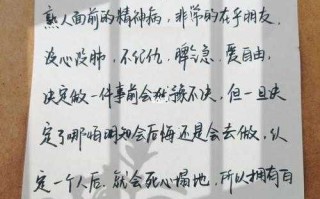 熟人面前的精神病，非常的在乎朋友，
没心没肺，不记仇，脾气急，爱自由，
决定做一件事前会犹豫不决，但一旦决
定了哪怕明知会后悔还是会去做，认
定一个人后，就会死心塌地，所以拥有自